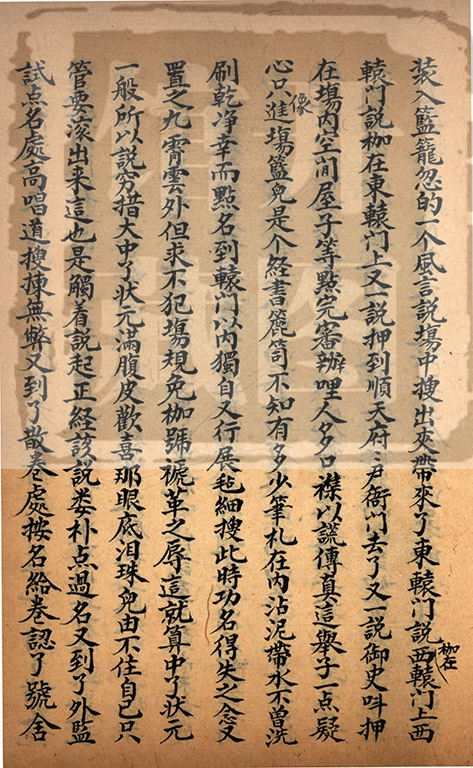 装入籃籠忽的一个風言說場中搜出夾帶來了東轅門說枷在西轅門上西
轅門說枷在東轅門上又一說押到順天府尹衙門去了又一說御史叫押
在場內空间屋子等點完審辦哩人多口襍以謊傳真這舉子一点疑
心只像進塲籃兒是个経書簏笥不知有多少筆札在內沾泥帶水不曽洗
刷乾净幸而點名到轅門以內獨自又行展毡細搜此時功名得失之念又
置之九霄雲外但求不犯塲規免枷號褫革之辱這就算中了狀元
一般所以說穷措大中了狀元滿腹皮歡喜那眼底泪珠兒由不住自己只
管要滚出来這也是觸着說起正経該說娄朴点過名又到了外監
試点名處高唱道搜揀無弊又到了散卷處按名給卷認了號舍